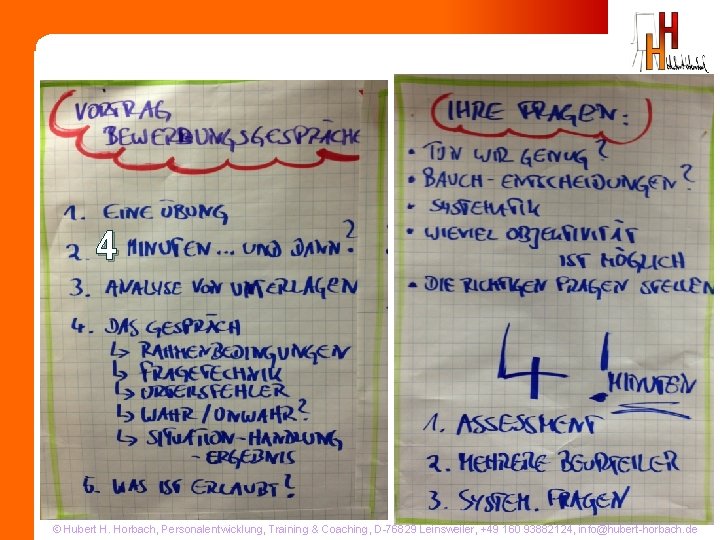 VORTRAG
BEWERBUNGSGESPRÄCHE
1. EINE ÜBUNG
2. 4 MINUTEN... UND DANN?
3. ANALYSE VON UNTERLAGEN
4. DAS GESPRÄCH
↳ RAHMENBEDINGUNGEN
↳ FRAGETECHNIK
↳ URTEILSFEHLER
↳ WAHR/UNWAHR?
↳ SITUATION-HANDLUNG
-ERGEBNIS
5. WAS IST ERLAUBT?
H
H
IHRE FRAGEN:
• TUN WIR GENUG?
• BAUCH-ENTSCHEIDUNGEN?
• SYSTEMATIK
• WIEVIEL OBJEKTIVITÄT
IST MÖGLICH
• DIE RICHTIGEN FRAGEN STELLEN
4!
MINUTEN
1. ASSESSMENT
2. MEHRERE BEURTEILER
3. SYSTEM. FRAGEN
© Hubert H. Horbach, Personalentwicklung, Training & Coaching, D-76829 Leinsweiler, +49 160 93882124, info@hubert-horbach.de